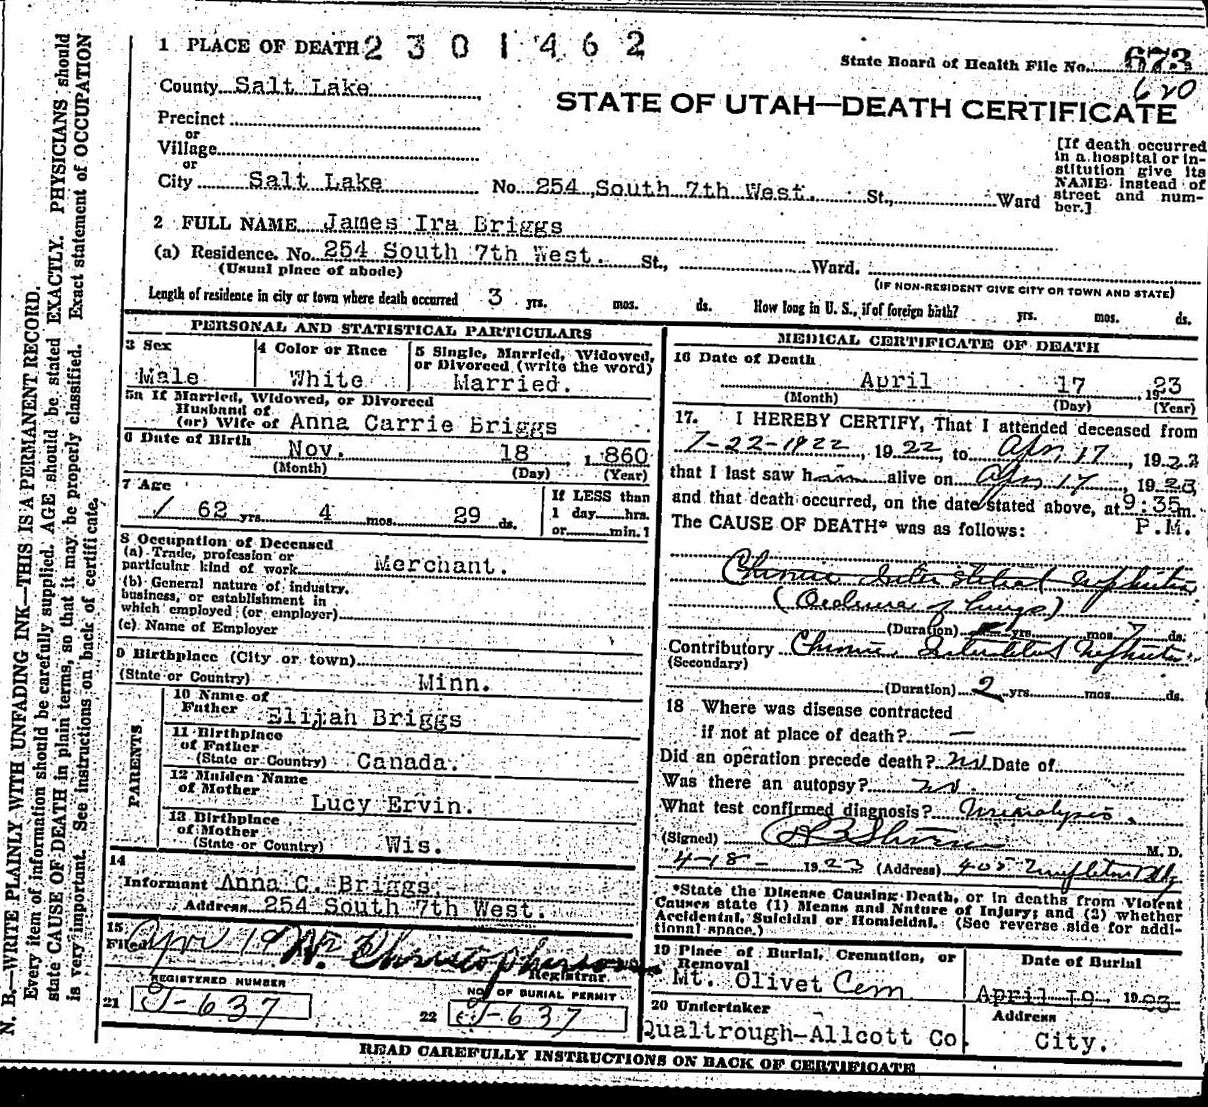 1 PLACE OF DEATH 2 3 0 1 4 6 2
State Board of Health File No. 673
620
County Salt Lake
STATE OF UTAH—DEATH CERTIFICATE
Precinct
or
Village
or
City Salt Lake No. 254 South 7th West. St., Ward
[If death occurred
in a hospital or in-
stitution give its
NAME instead of
street and num-
ber.]
2 FULL NAME James Ira Briggs
(a) Residence. No. 254 South 7th West. St., Ward.
(Usual place of abode)
(IF NON-RESIDENT GIVE CITY OR TOWN AND STATE)
Length of residence in city or town where death occurred 3 yrs. mos. ds. How long in U. S., if of foreign birth? yrs. mos. ds.
PERSONAL AND STATISTICAL PARTICULARS
3 Sex
Male
4 Color or Race
White
5 Single, Married, Widowed,
or Divorced (write the word)
Married.
5a If Married, Widowed, or Divorced
Husband of
(or) Wife of Anna Carrie Briggs
6 Date of Birth
Nov. 18 , 1 860
(Month) (Day) (Year)
7 Age
62 yrs. 4 mos. 29 ds.
If LESS than
1 day hrs.
or min.?
8 Occupation of Deceased
(a) Trade, profession or
particular kind of work Merchant.
(b) General nature of industry,
business, or establishment in
which employed (or employer)
(c) Name of Employer
9 Birthplace (City or town)
(State or Country) Minn.
PARENTS
10 Name of
Father Elijah Briggs
11 Birthplace
of Father
(State or Country) Canada.
12 Maiden Name
of Mother
Lucy Ervin.
13 Birthplace
of Mother
(State or Country) Wis.
14
Informant Anna C. Briggs.
Address 254 South 7th West.
15
Filed Apr 19
Registrar
REGISTERED NUMBER
21 J-637
NO. OF BURIAL PERMIT
22 J-637
MEDICAL CERTIFICATE OF DEATH
16 Date of Death
April 17 1923
(Month) (Day) (Year)
17. I HEREBY CERTIFY, That I attended deceased from
7-22-1922, 1922, to Apr, 17, 1923
that I last saw him alive on Apr, 17, 1923,
and that death occurred, on the date stated above, at 9:35 m.
P.M.
The CAUSE OF DEATH* was as follows:
Chronic Interstitial Nephritis
(Oedema of lungs)
(Duration) yrs. mos. 7 ds.
Contributory Chronic Interstitial Nephritis
(Secondary)
(Duration) 2 yrs. mos. ds.
18 Where was disease contracted
if not at place of death? —
Did an operation precede death? no Date of
Was there an autopsy? no.
What test confirmed diagnosis? Urinalysis.
(Signed) M. D.
4-18- 1923 (Address) 405 Templeton Bldg
*State the Disease Causing Death, or in deaths from Violent
Causes state (1) Means and Nature of Injury; and (2) whether
Accidental, Suicidal or Homicidal. (See reverse side for addi-
tional space.)
19 Place of Burial, Cremation, or
Removal
Mt. Olivet Cem
Date of Burial
April 19, 1923
20 Undertaker
Qualtrough-Allcott Co.
Address
City.
READ CAREFULLY INSTRUCTIONS ON BACK OF CERTIFICATE
N. B.—WRITE PLAINLY WITH UNFADING INK—THIS IS A PERMANENT RECORD.
Every item of information should be carefully supplied. AGE should be stated EXACTLY. PHYSICIANS should
state CAUSE OF DEATH in plain terms, so that it may be properly classified. Exact statement of OCCUPATION
is very important. See instructions on back of certificate.